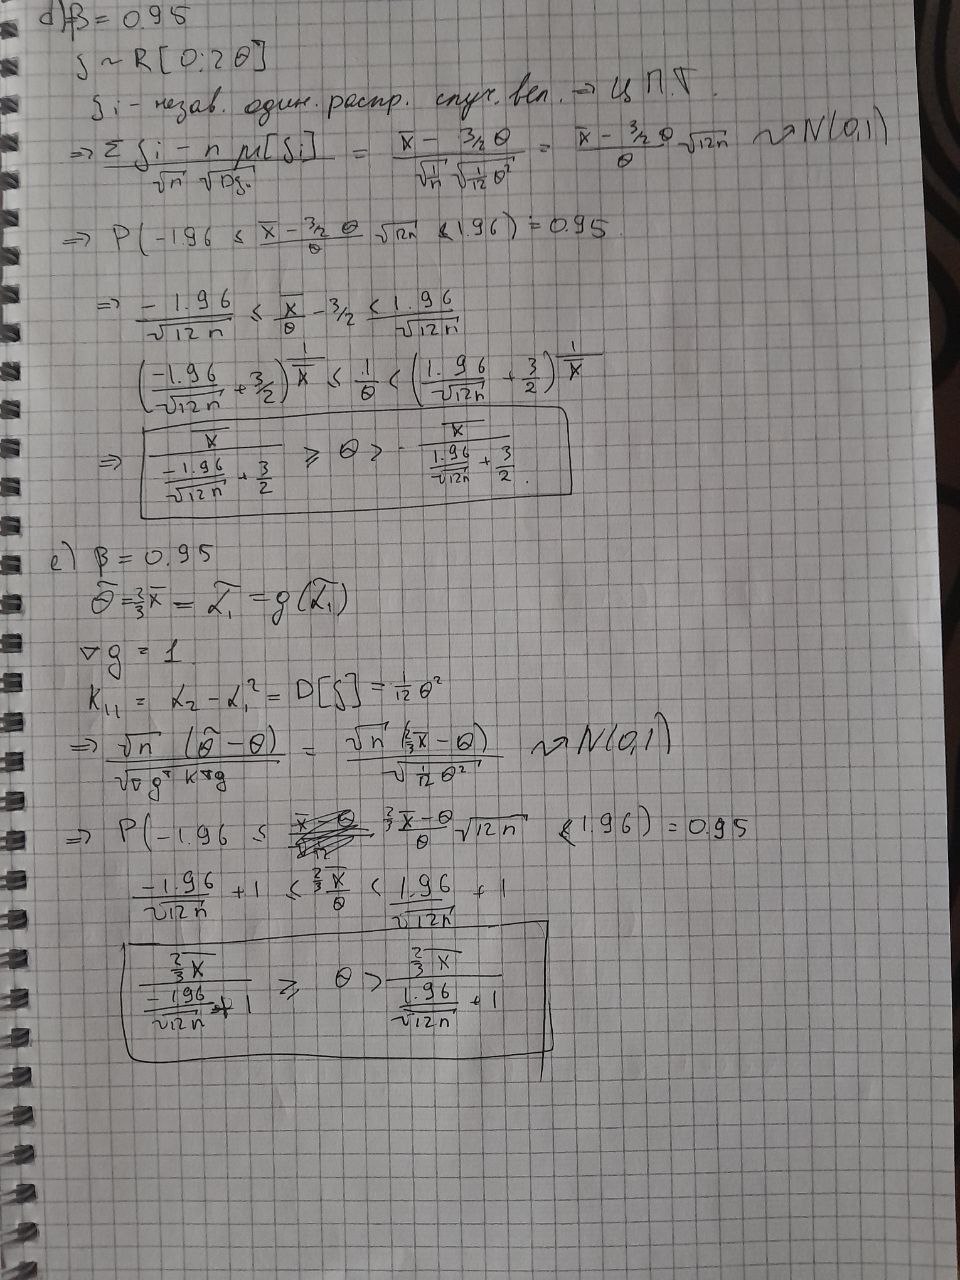 d) β = 0.95
ξ ~ R[0; 2θ]
ξi - незав. один. распр. случ. вел. → ЦПТ.
⇒ (Σξi - n μ[ξi]) / (√n √Dξi) = (x̄ - 3/2 θ) / (√(1/n) √(1/12 θ²)) = (x̄ - 3/2 θ)/θ √12n ⤳ N(0,1)
⇒ P(-1.96 ≤ (x̄ - 3/2 θ)/θ √12n < 1.96) = 0.95
⇒ -1.96/√12n ≤ x̄/θ - 3/2 < 1.96/√12n
(-1.96/√12n + 3/2) 1/x̄ ≤ 1/θ < (1.96/√12n + 3/2) 1/x̄
⇒ x̄ / (-1.96/√12n + 3/2) ≥ θ > x̄ / (1.96/√12n + 3/2).
e) β = 0.95
θ̃ = 2/3 x̄ = α̃₁ = g(α̃₁)
∇g = 1
K₁₁ = α₂ - α₁² = D[ξ] = 1/12 θ²
⇒ √n (θ̃ - θ) / √(∇gᵀ K ∇g) = √n (2/3 x̄ - θ) / √(1/12 θ²) ⤳ N(0,1)
⇒ P(-1.96 ≤ (2/3 x̄ - θ)/θ √12n < 1.96) = 0.95
-1.96/√12n + 1 ≤ 2/3 x̄/θ < 1.96/√12n + 1
2/3 x̄ / (-1.96/√12n + 1) ≥ θ > 2/3 x̄ / (1.96/√12n + 1)